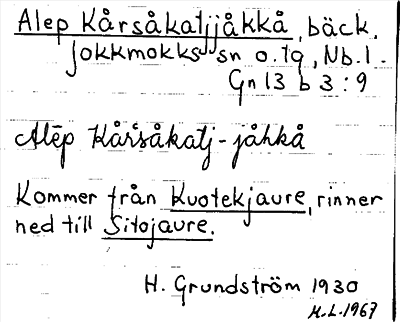 Alep Kårsåkatjjåkkå, bäck,
Jokkmokks sn o. tg, Nb. l.
Gn 13 b 3:9
Alēp Kår̄såkatj-jåhkå
Kommer från Kuotekjaure, rinner
ned till Sitojaure.
H. Grundström 1930
M.L. 1967